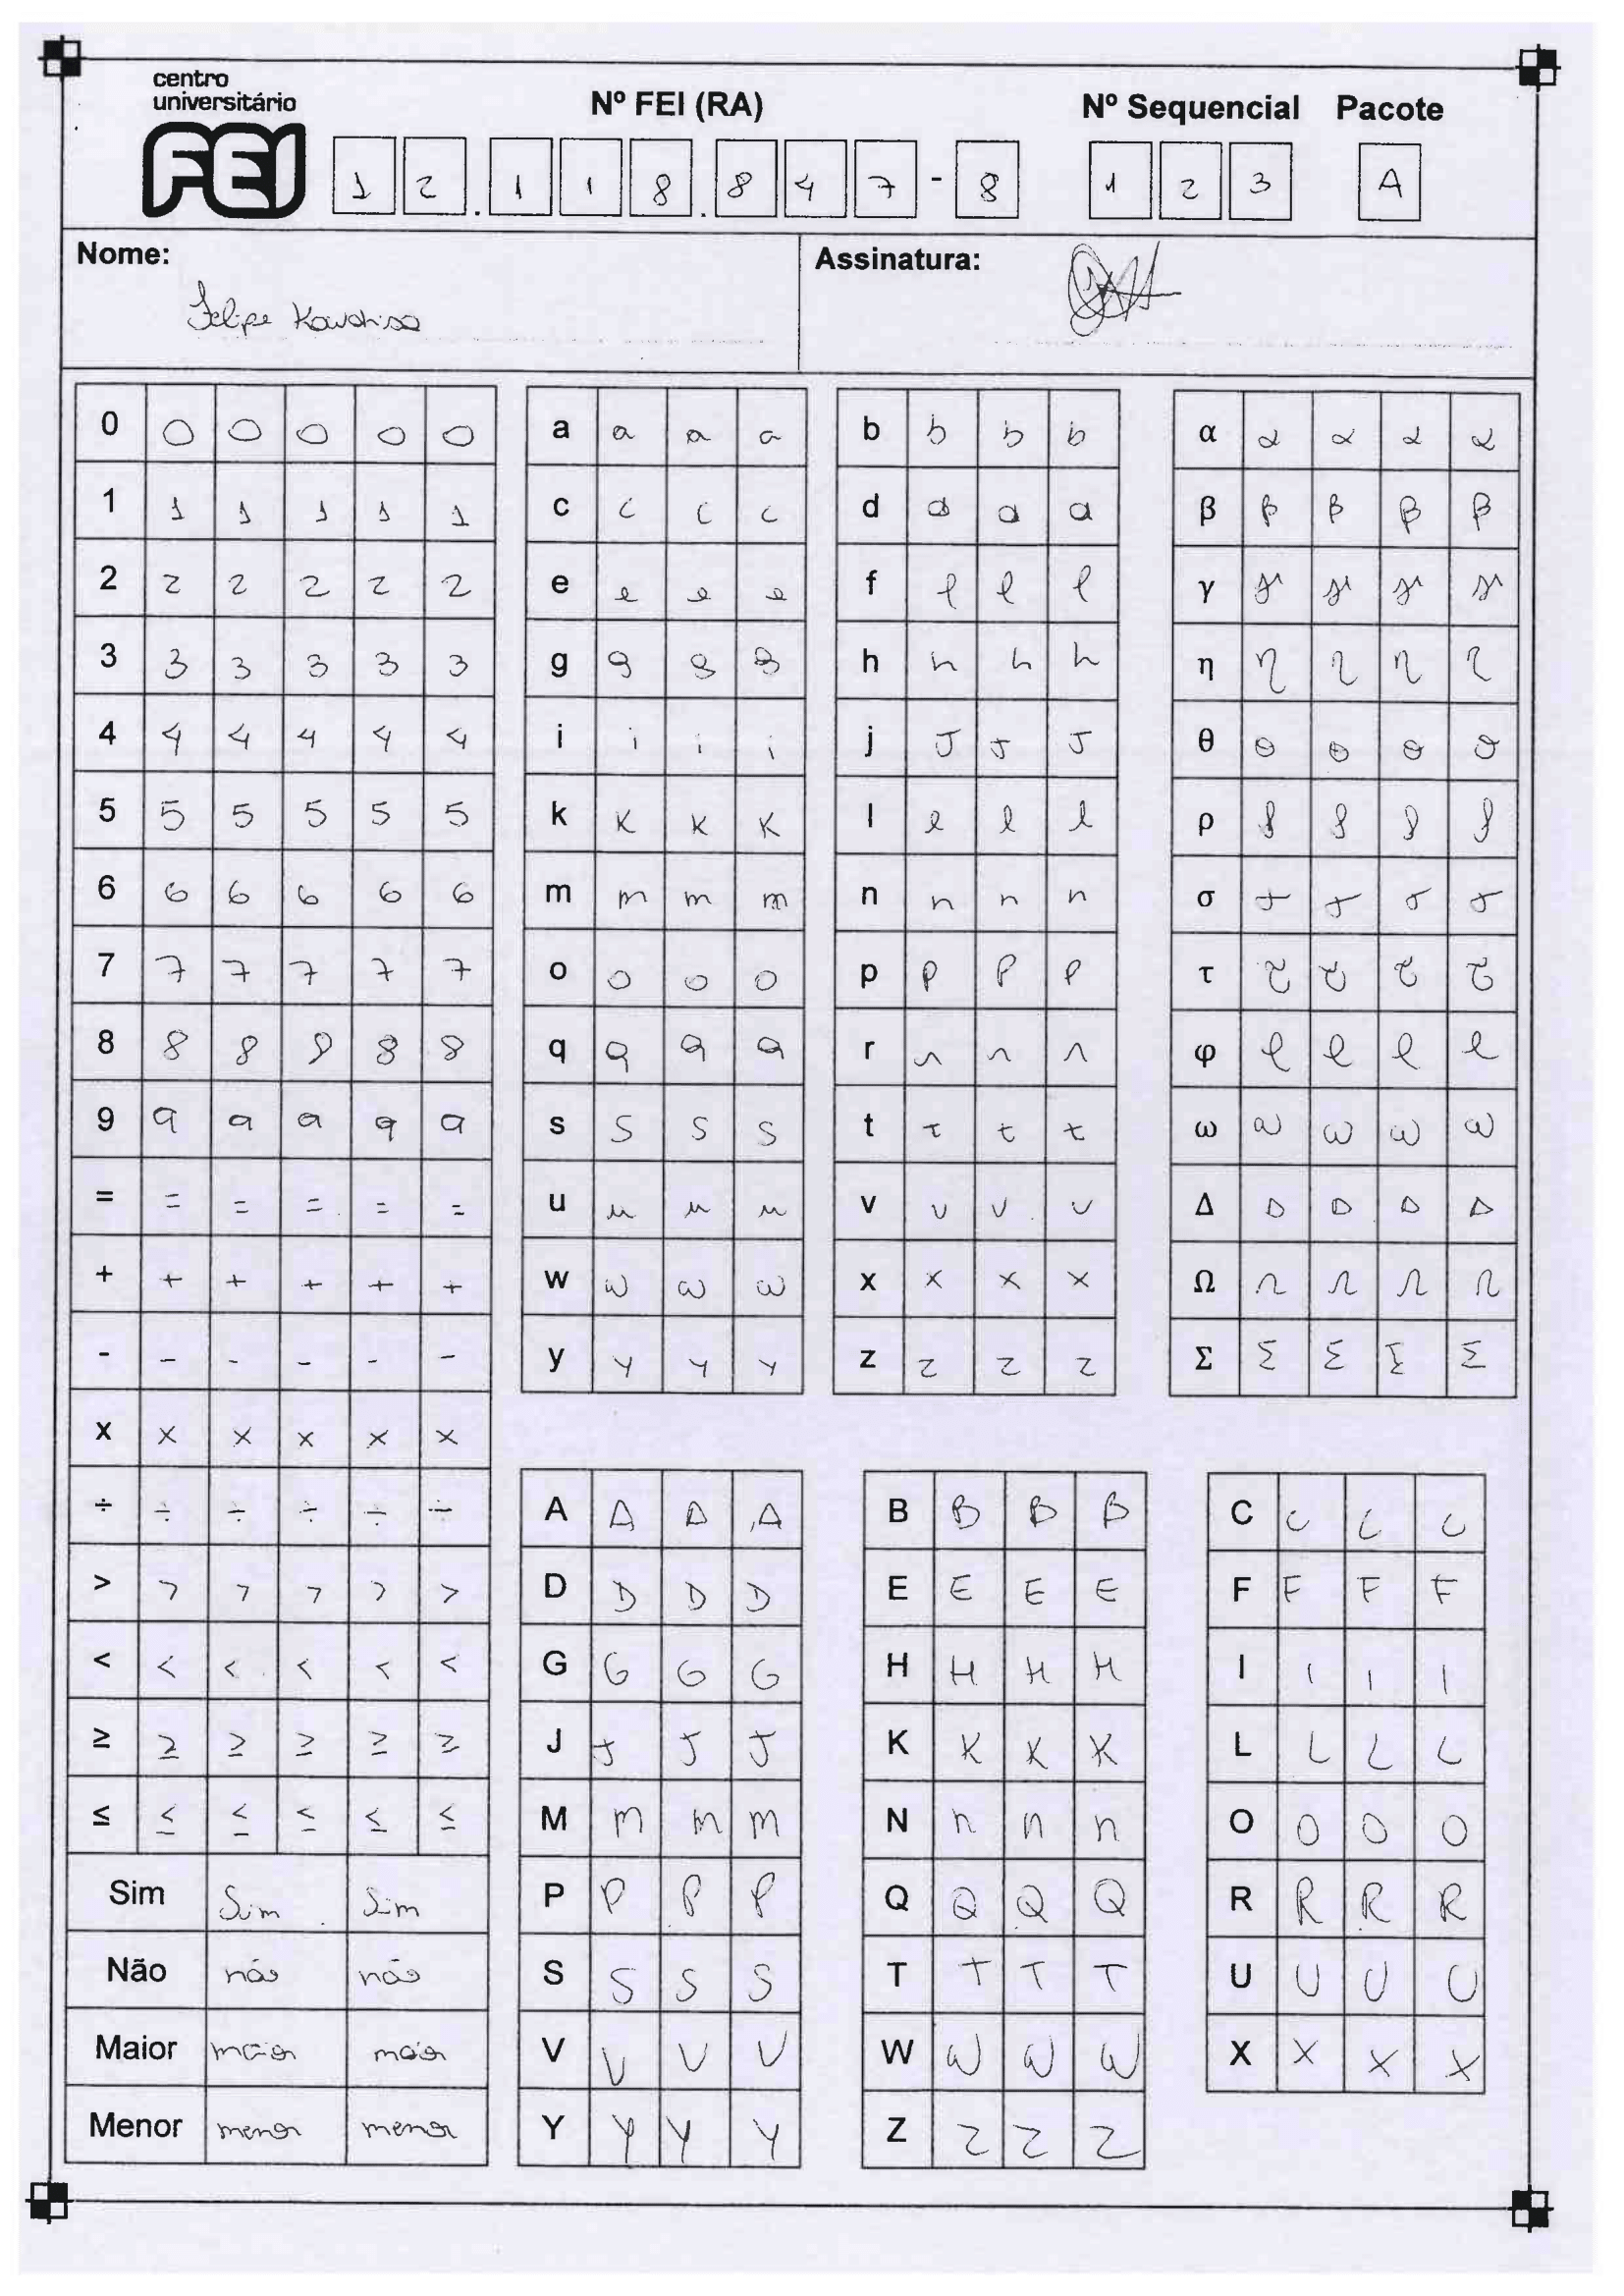 centro
universitário
FEI
Nº FEI (RA)
Nº Sequencial Pacote
12.118.847-8 123 A
Nome: Assinatura:
Felipe
0 0 0 0 0 0
1 1 1 1 1 1
2 2 2 2 2 2
3 3 3 3 3 3
4 4 4 4 4 4
5 5 5 5 5 5
6 6 6 6 6 6
7 7 7 7 7 7
8 8 8 8 8 8
9 9 9 9 9 9
= = = = = =
+ + + + + +
- - - - - -
x x x x x x
÷ ÷ ÷ ÷ ÷ ÷
> > > > > >
< < < < < <
≥ ≥ ≥ ≥ ≥ ≥
≤ ≤ ≤ ≤ ≤ ≤
Sim Sim Sim
Não não não
Maior maior maior
Menor menor menor
a a a a
c c c c
e e e e
g g g g
i i i i
k k k k
m m m m
o o o o
q q q q
s s s s
u u u u
w w w w
y y y y
b b b b
d d d d
f f f f
h h h h
j j j j
l l l l
n n n n
p p p p
r r r r
t t t t
v v v v
x x x x
z z z z
α α α α α
β β β β β
γ γ γ γ γ
η η η η η
θ θ θ θ θ
ρ ρ ρ ρ ρ
σ σ σ σ σ
τ τ τ τ τ
φ φ φ φ φ
ω ω ω ω ω
Δ Δ Δ Δ Δ
Ω Ω Ω Ω Ω
Σ Σ Σ Σ Σ
A A A A
D D D D
G G G G
J J J J
M m m m
P P P P
S S S S
V V V V
Y Y Y Y
B B B B
E E E E
H H H H
K K K K
N n n n
Q Q Q Q
T T T T
W W W W
Z Z Z Z
C C C C
F F F F
I I I I
L L L L
O O O O
R R R R
U U U U
X X X X